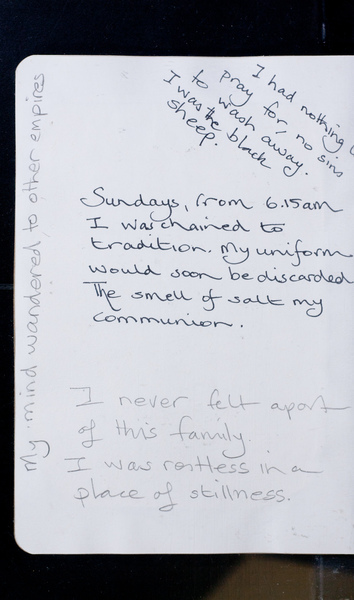 I had nothing
pray for, no sins
to wash away.
I was the black
sheep.
Sundays, from 6.15am
I was chained to
tradition. My uniform
would soon be discarded
The smell of salt my
communion.
I never felt apart
of this family.
I was restless in a
place of stillness.
My mind wandered to other empires